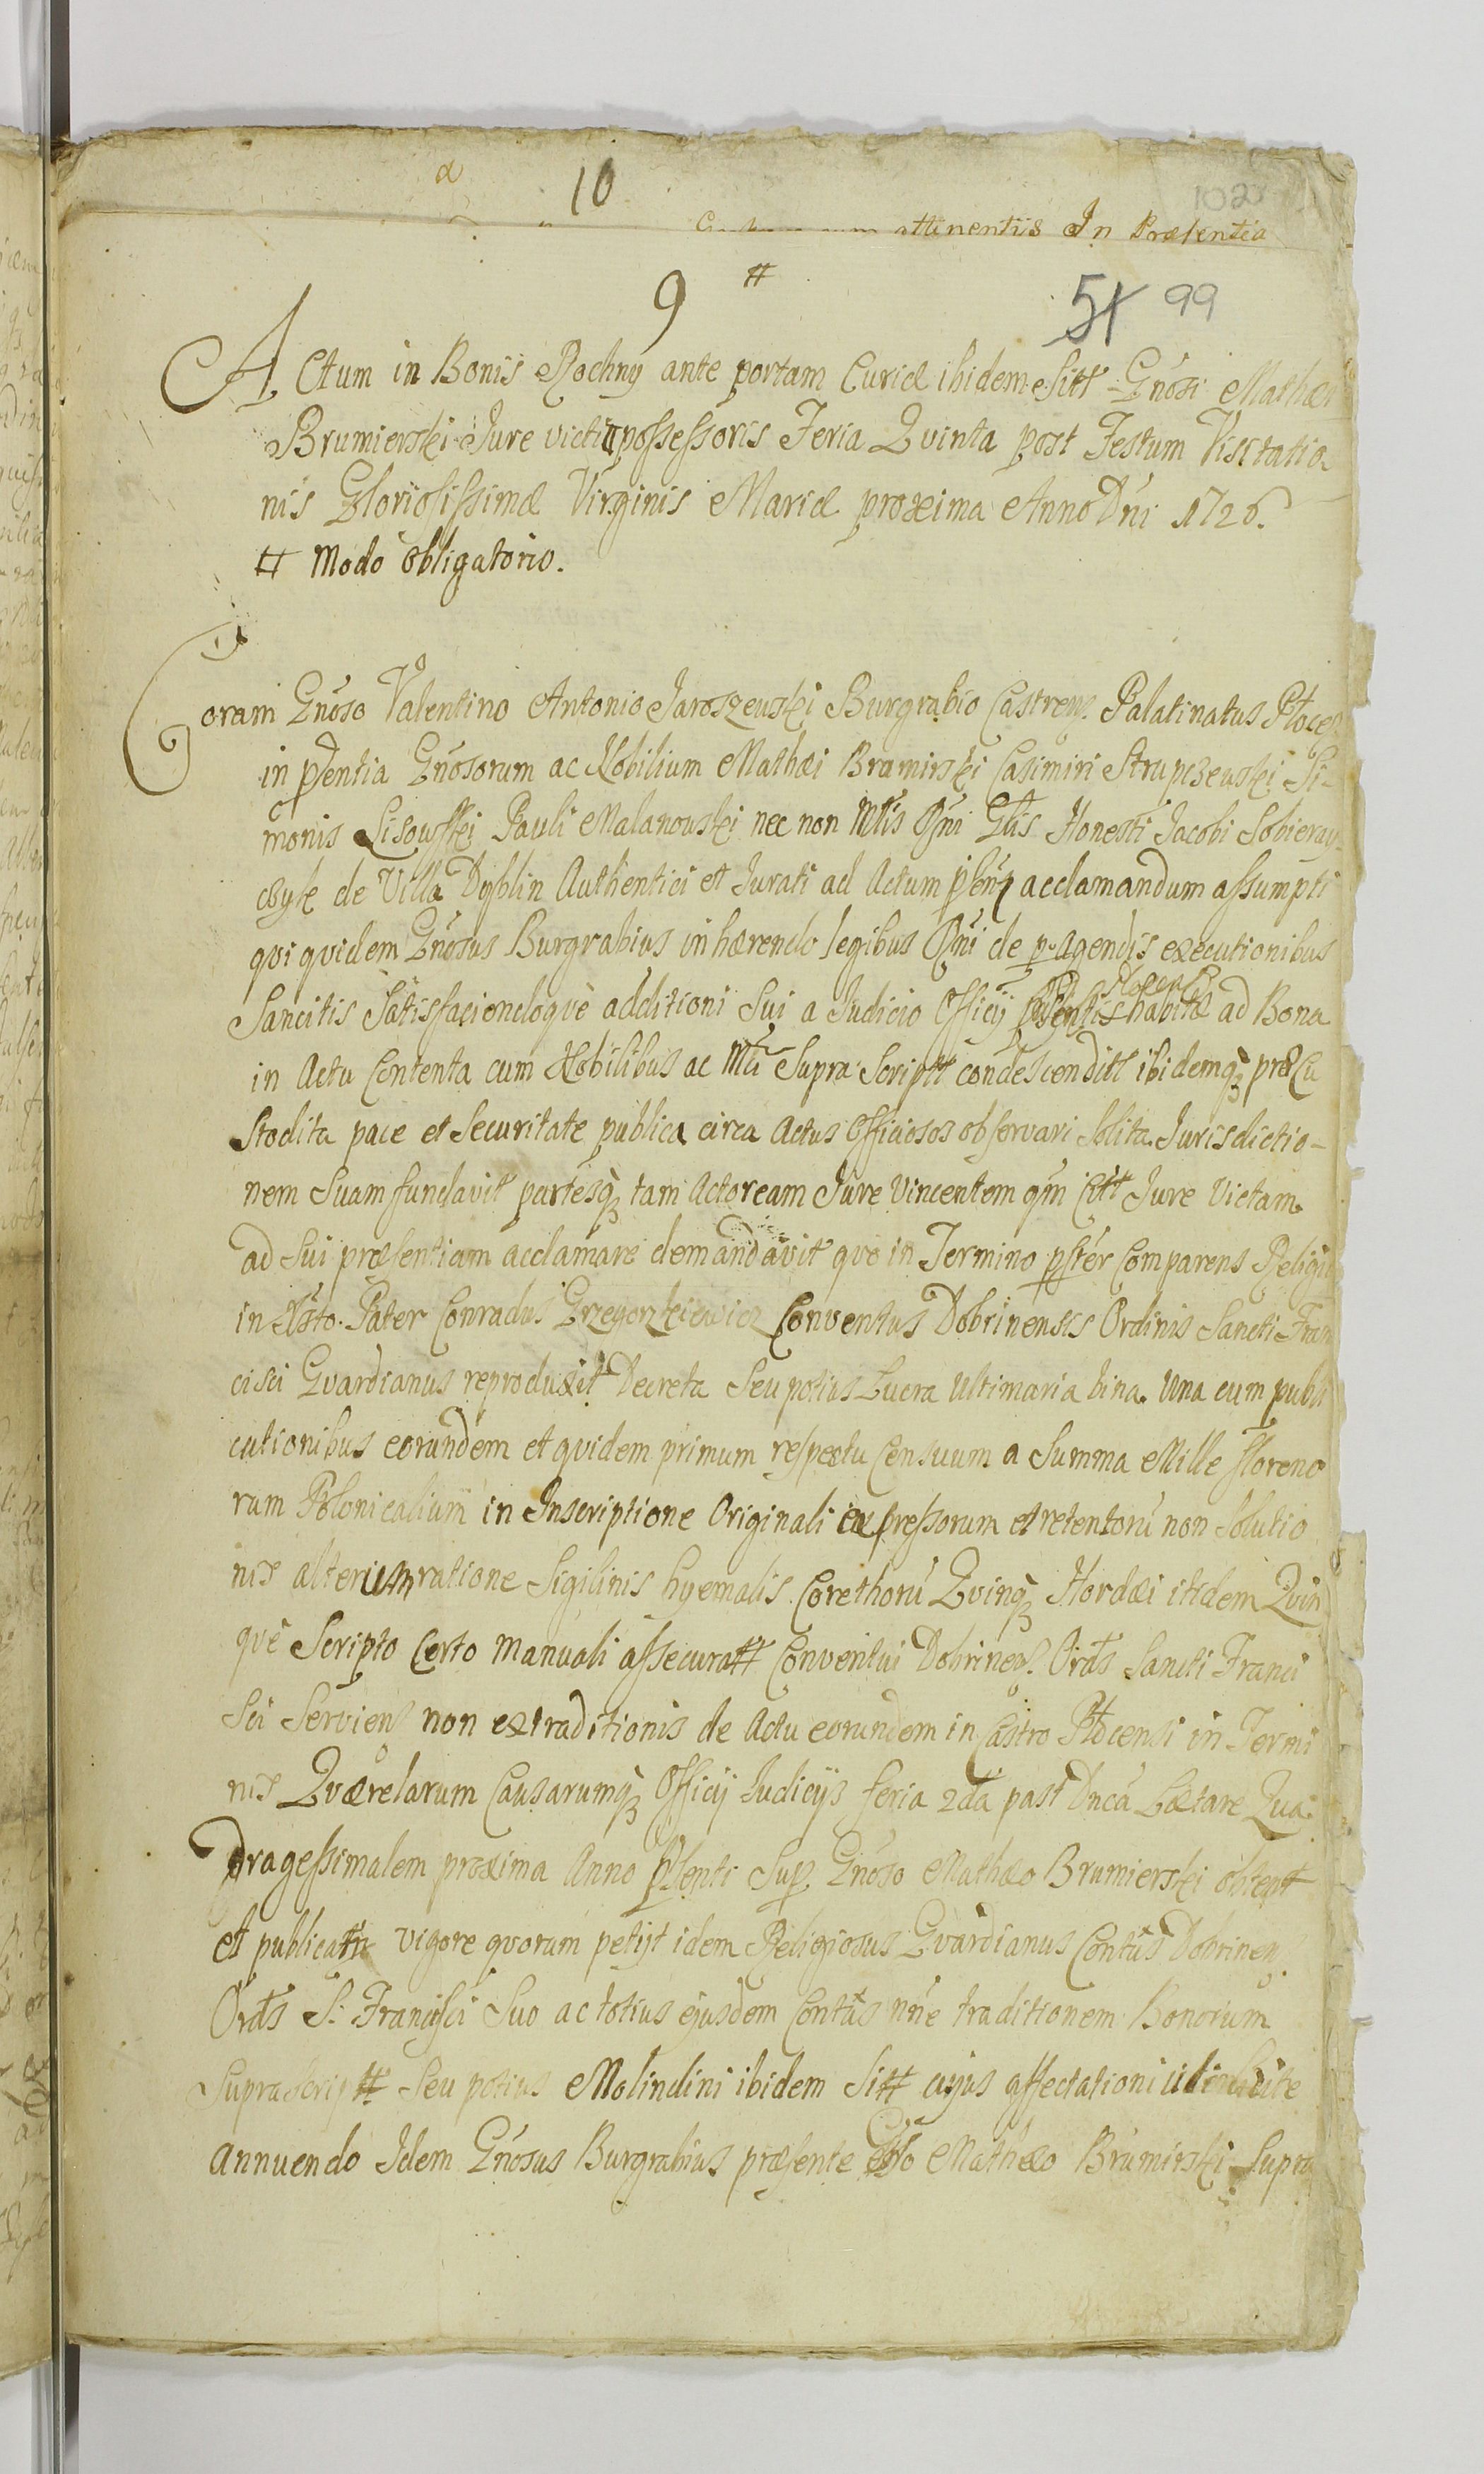 10
102
attinentiis In Præsentia
9 #
51 99
Actum in Bonis Rochny ante portam Curiæ ibidem sitt Gnosi Mathæi
Brumierski Jure victi possessoris Feria Quinta post Festum Visitatio
nis Gloriosissimæ Virginis Mariæ proxima Anno Dni 1726.
# Modo obligatorio.
Coram Gnoso Valentino Antonio Jaroszewski Burgrabio Castren. Palatinatus Płocen
in psentia Gnosorum ac Nobilium Mathæi Bramirski Casimiri Strupczewski Si-
monis Lisowski Pauli Malanowski nec non Mtis Rni Glis Honesti Jacobi Sobieray
czyk de Villa Dyblin Authentici et Jurati ad Actum psenz acclamandum assumpti
qui quidem Gnosus Burgrabius inhærendo legibus Rni de p-agendis executionibus
Sancitis Satisfaciendoque additioni Sui a Judicio Officij habitæ ad Bona
in Actu Contenta cum Nobilibus ac Mtli Supra Scriptt condescendit ibidemq præcu
stodita pace et Securitate publica circa Actus Officiosos observari Solita Jurisdictio-
nem Suam fundavit partesq tam Actoream Jure Vincentem qm Citt Jure Victam
ad Sui præsentiam acclamare demandavit quo in Termino pster Comparens Religi
in Xsto Pater Conradus Grzegorzkiewicz Conventus Dobrinensis Ordinis Sancti Fran
cisci Gvardianus reproduxit Decreta Seu potius Lucra Ultimaria bina Una cum publi
cationibus eorundem et quidem primum respectu Censuum a Summa Mille floreno
rum Polonicalium in Inscriptione Originali expressorum et retentoru non Solutio
nis alterum ratione Sigilinis hyemalis Corethoru Quinq Hordæi itidem Quin
que Scripto Certo Manuali assecuratt Conventui Dobrinen. Ords Sancti Franci
sci Serviens non extraditionis de Actu eorundem in Castro Płocensi in Termi
nis Quærelarum Causarumq Officij Judicijs feria 2da past Dncã Lætare Qua
dragessimalem proxima Anno psenti Sup. Gnoso Mathæo Brumierski obtentt
et publicatis vigore quorum petijt idem Religiosus Gvardianus Contus Dobrinen
Ords S. Francisci Suo ac totius ejusdem Contus nne traditionem Bonorum
Suprascriptt Seu potius Molindini ibidem Sitt cujus affectationi
annuendo Idem Gnosus Burgrabius præsente Mathæo Brumirski Supra